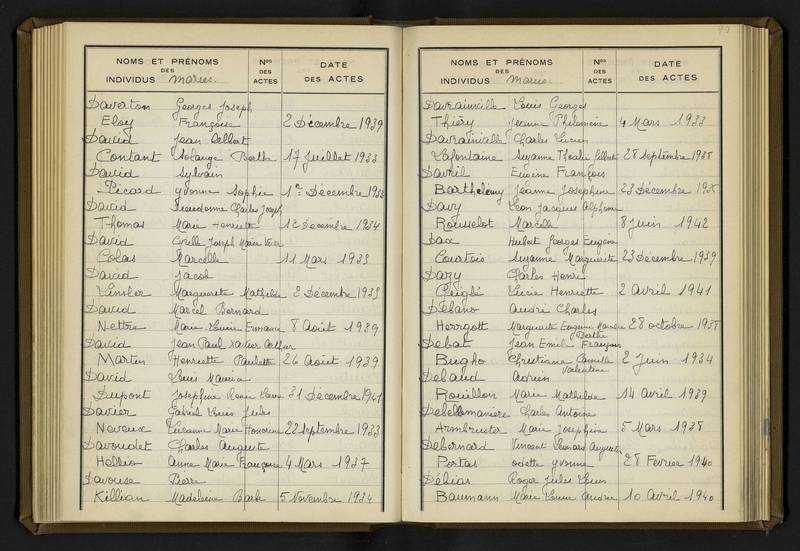 NOMS ET PRÉNOMS
DES
INDIVIDUS Mariés.
Nos
DES
ACTES
DATE
DES ACTES
Daverton Georges Joseph
Eloy Françoise 2 Décembre 1939
David Jean Albert
Contant Solange Berthe 17 Juillet 1933
David Sylvain
Picard Yvonne Sophie 1er Décembre 1933
David Dieudonné Charles Joseph
Thomas Marie Henriette 12 Décembre 1934
David Cyrille Joseph Marie
Colas Marcelle 11 Mars 1935
David Jacob
Marguerite Mathilde 2 Décembre 1935
David Marcel Bernard
Nettre Marie Lucie 8 Août 1939
David Jean Paul Xavier Arthur
Martin Henriette Paulette 26 Août 1939
David Louis Maurice
Dupont Joséphine 31 Décembre 1941
Davier Gabriel Louis Jules
Neveux Lucienne Marie Honorine 22 Septembre 1933
Davoudet Charles Auguste
Hellio Anne Marie Françoise 4 Mars 1937
Davouse Pierre
Killian Madeleine Barbe 5 Novembre 1934
90
NOMS ET PRÉNOMS
DES
INDIVIDUS Mariés
Nos
DES
ACTES
DATE
DES ACTES
Davrainville Louis Georges
Thiéry Jeanne Philomène 4 Mars 1933
Davrainville Charles Lucien
Lafontaine Suzanne 28 Septembre 1935
Davril Eugène François
Barthélemy Jeanne Joséphine 23 Décembre
Davy Léon Jacques Alphonse
Rousselot Marcelle 8 Juin 1942
Dax Hubert Georges Eugène
Suzanne Marguerite 23 Décembre 1939
Dazy Charles Henri
Lucie Henriette 2 Avril 1941
Débano André Charles
Herrgott Marguerite Eugénie 28 octobre 1935
Berthe
Débat Jean Emile François
Bugho Christiane Camille 2 Juin 1934
Valentine
Débaud Adrien
Rouillon Marie Mathilde 14 Avril 1939
Debellemanière Charles Antoine
Armbruster Marie Joséphine 5 Mars 1935
Debernard Vincent Léonard Augustin
Portas Odette Yvonne 28 Février 1940
Débias Roger Jules Louis
Baumann Marie Louise Andrée 10 Avril 1940